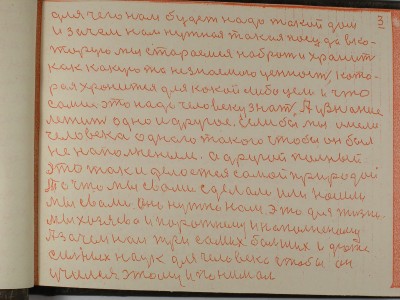 3
для чего нам будет надо такой дом
и зачем нам нужная такая посуда в ко-
торую мы стараемся наброти хранит
как какую то незнаемого ценность, кото-
рая хранится для какой либо цели и что
самим это надо человеку знат. А и знание
летит одно и другое. Если бы мы имели
человека одного такого чтобы он был
не наполненым. а другой полный
это так и делается самой природой
То что мы с вами сделали или нашли
мы с вами оно нужно нам. Это для жизни.
мы хозяева и порожному и наполненому
А зачем нам три самих больших и даже
сильных наук для человека чтобы он
учился этому и понимал